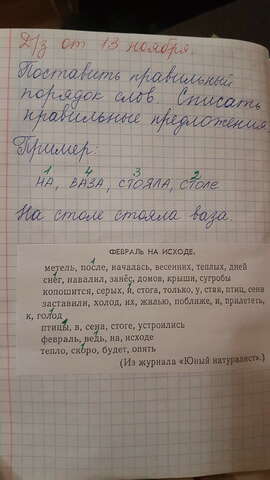 Д/з от 13 ноября.
Поставить правильный
порядок слов. Списать
правильные предложения
Пример:
1 4 3 2
НА, ВАЗА, СТОЯЛА, СТОЛЕ
На столе стояла ваза
ФЕВРАЛЬ НА ИСХОДЕ.
метель, после, началась, весенних, теплых, дней
снег, навалил, занёс, домов, крыши, сугробы
копошится, серых, и, стога, только, у, стая, птиц, сена
заставили, холод, их, жилью, поближе, и, прилететь,
к, голод
птицы, в, сена, стоге, устроились
февраль, ведь, на, исходе
тепло, скоро, будет, опять
(Из журнала «Юный натуралист».)